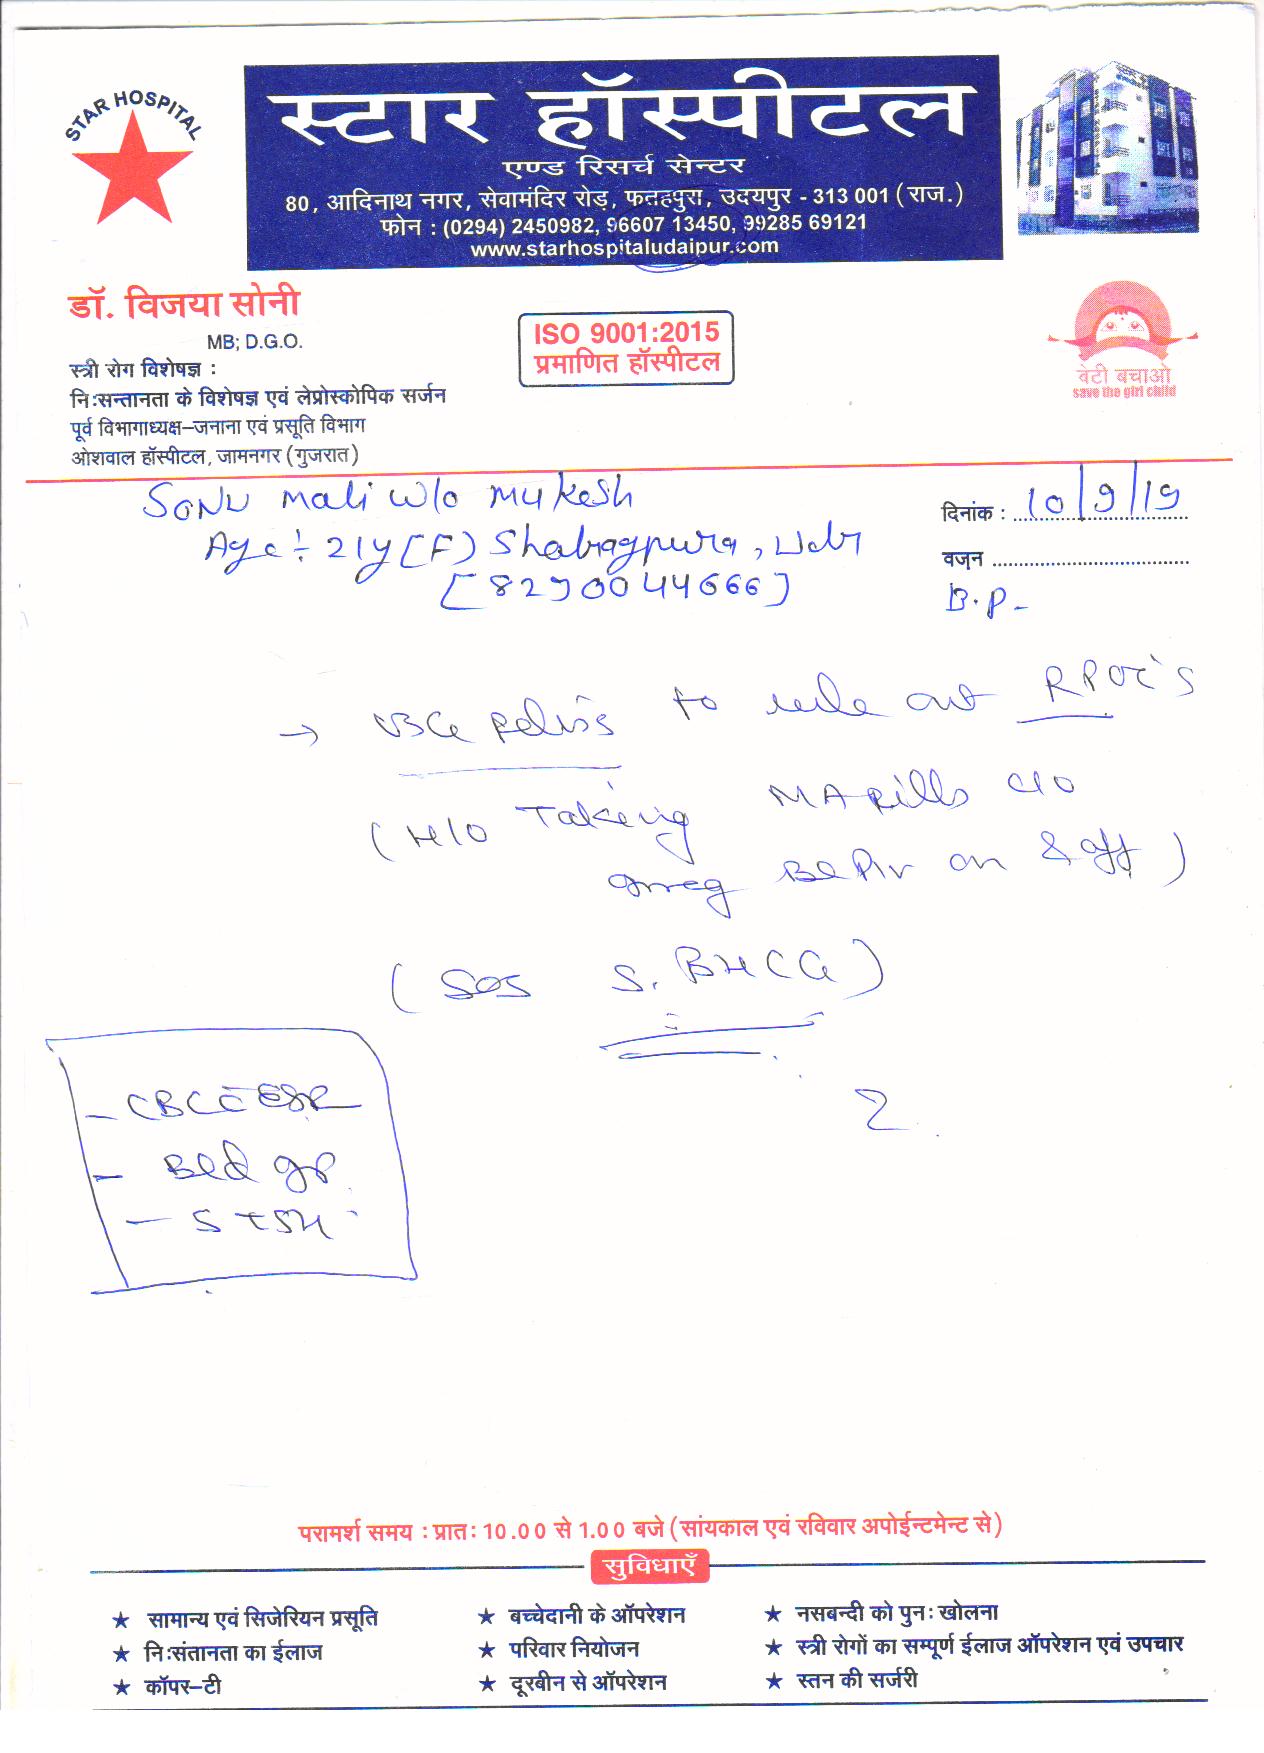 STAR HOSPITAL
स्टार हॉस्पीटल
एण्ड रिसर्च सेन्टर
80, आदिनाथ नगर, सेवामंदिर रोड़, फतहपुरा, उदयपुर - 313 001 (राज.)
फोन : (0294) 2450982, 96607 13450, 99285 69121
www.starhospitaludaipur.com
डॉ. विजया सोनी
MB; D.G.O.
स्त्री रोग विशेषज्ञ :
निःसन्तानता के विशेषज्ञ एवं लेप्रोस्कोपिक सर्जन
पूर्व विभागाध्यक्ष–जनाना एवं प्रसूति विभाग
ओशवाल हॉस्पीटल, जामनगर (गुजरात)
ISO 9001:2015
प्रमाणित हॉस्पीटल
बेटी बचाओ
save the girl child
SONU Mali w/o Mukesh
Age :- 21y (F) Shobhagpura, Udr
[8290044666]
दिनांक : 10/9/19
वजन
B.P -
→ USG Pelvis to rule out RPOC's
(H/O Taking MA Pills c/o
irreg Bl P/V on & off)
(SOS S. BHCG)
- CBC c ESR
- Bld gp
- S TSH
परामर्श समय : प्रातः 10.00 से 1.00 बजे (सांयकाल एवं रविवार अपोईन्टमेन्ट से)
सुविधाएँ
★ सामान्य एवं सिजेरियन प्रसूति ★ बच्चेदानी के ऑपरेशन ★ नसबन्दी को पुनः खोलना
★ निःसंतानता का ईलाज ★ परिवार नियोजन ★ स्त्री रोगों का सम्पूर्ण ईलाज ऑपरेशन एवं उपचार
★ कॉपर–टी ★ दूरबीन से ऑपरेशन ★ स्तन की सर्जरी